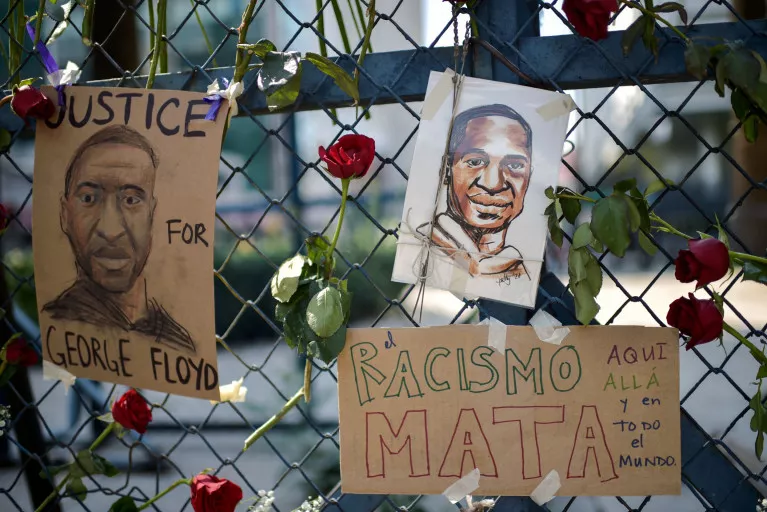 JUSTICE
FOR
GEORGE FLOYD
el
RACISMO
MATA
AQUI
ALLÁ
y en
TODO
el
MUNDO.